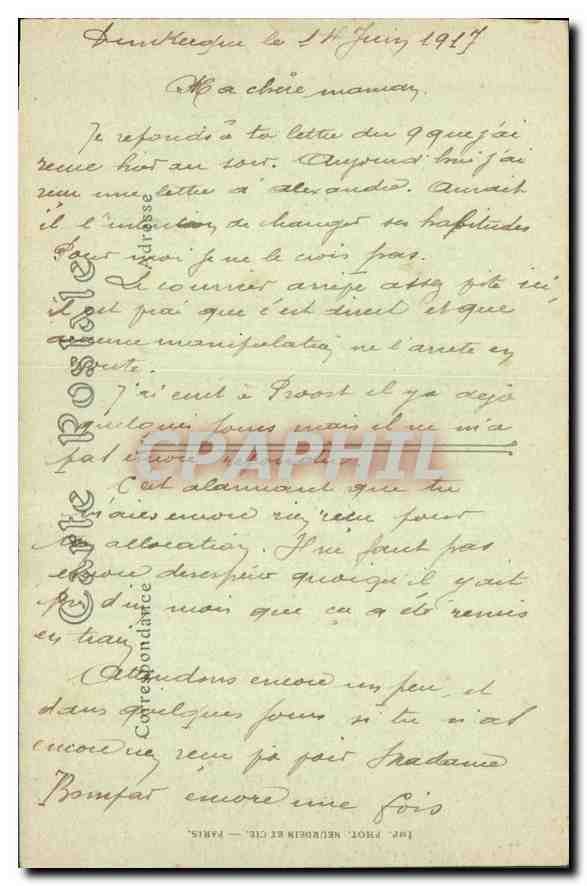 Dunkerque le 14 Juin 1917
Ma chère maman,
Je reponds à ta lettre du 9 que j'ai
recue hier au soir. Aujourd'hui j'ai
recu une lettre d'alexandre. Aurait
il l'intention de changer ses habitudes
Pour moi je ne le crois pas.
Le courrier arrive assez vite ici,
il est vrai que c'est direct et que
aucune manipulation ne l'arrete en
route.
J'ai ecrit à Proost il y a dejà
quelques jours mais il ne m'a
pas encore repondu.
C'est alarmant que tu
n'aies encore rien recu pour
allocation. Il ne faut pas
encore desesperer quoiqu'il y ait
pres d'un mois que ca a été remis
en train
Attendons encore un peu, et
dans quelques jours si tu n'as
encore rien recu va voir Madame
encore une fois
Carte Postale
Correspondance
Adresse
CPAPHIL
Imp. PHOT. NEURDEIN ET CIE. — PARIS.